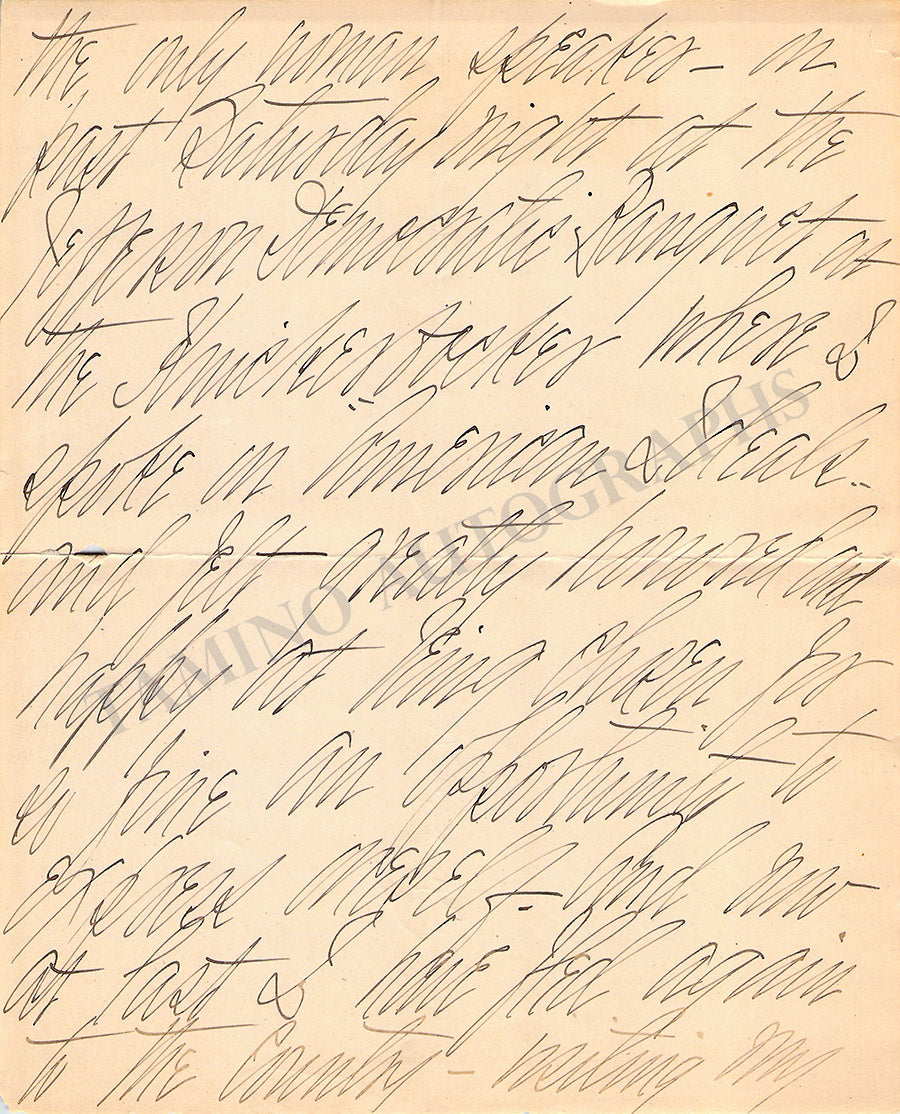 the only woman speaker – on
last Saturday night at the
Jefferson Democratic Banquet at
the Knickerbocker where I
spoke on American Ideals –
and felt greatly honored and
happy at being chosen for
so fine an opportunity to
express oneself – And now
at last I have fled again
to the Country – visiting my
TAMINO AUTOGRAPHS